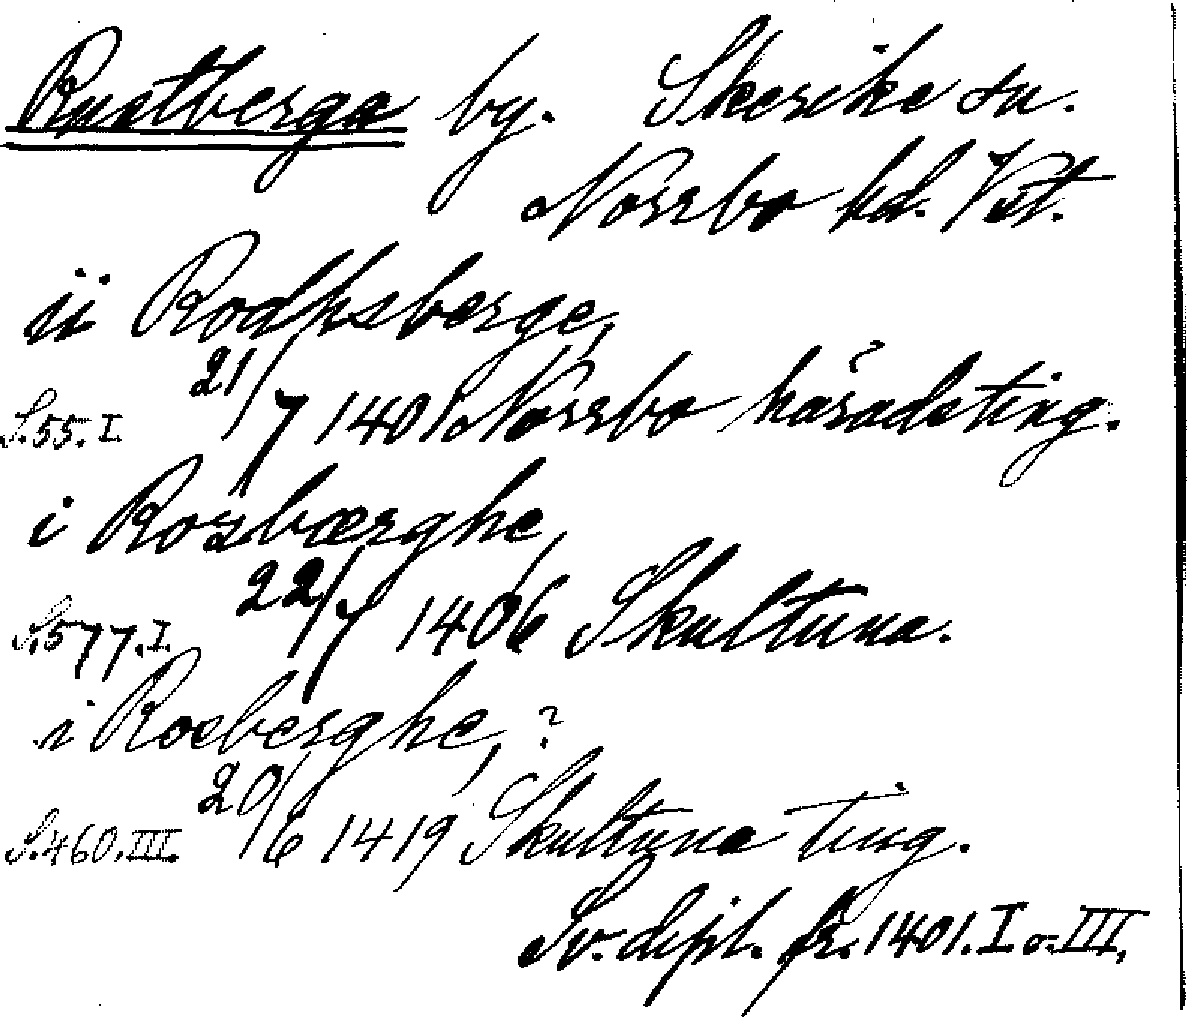 Rustberga by. Skerike sn.
Norrbo hd. Vst.
ii Rodhsberge,
S. 55. I. 21/7 1401 Norrbo häradsting.
i Rosbærghe,
S. 577. I. 22/7 1406 Skultuna.
i Rosberghe, ?
S. 460. III. 20/6 1419 Skultuna ting.
Sv. dipl. fr. 1401. I o. III.